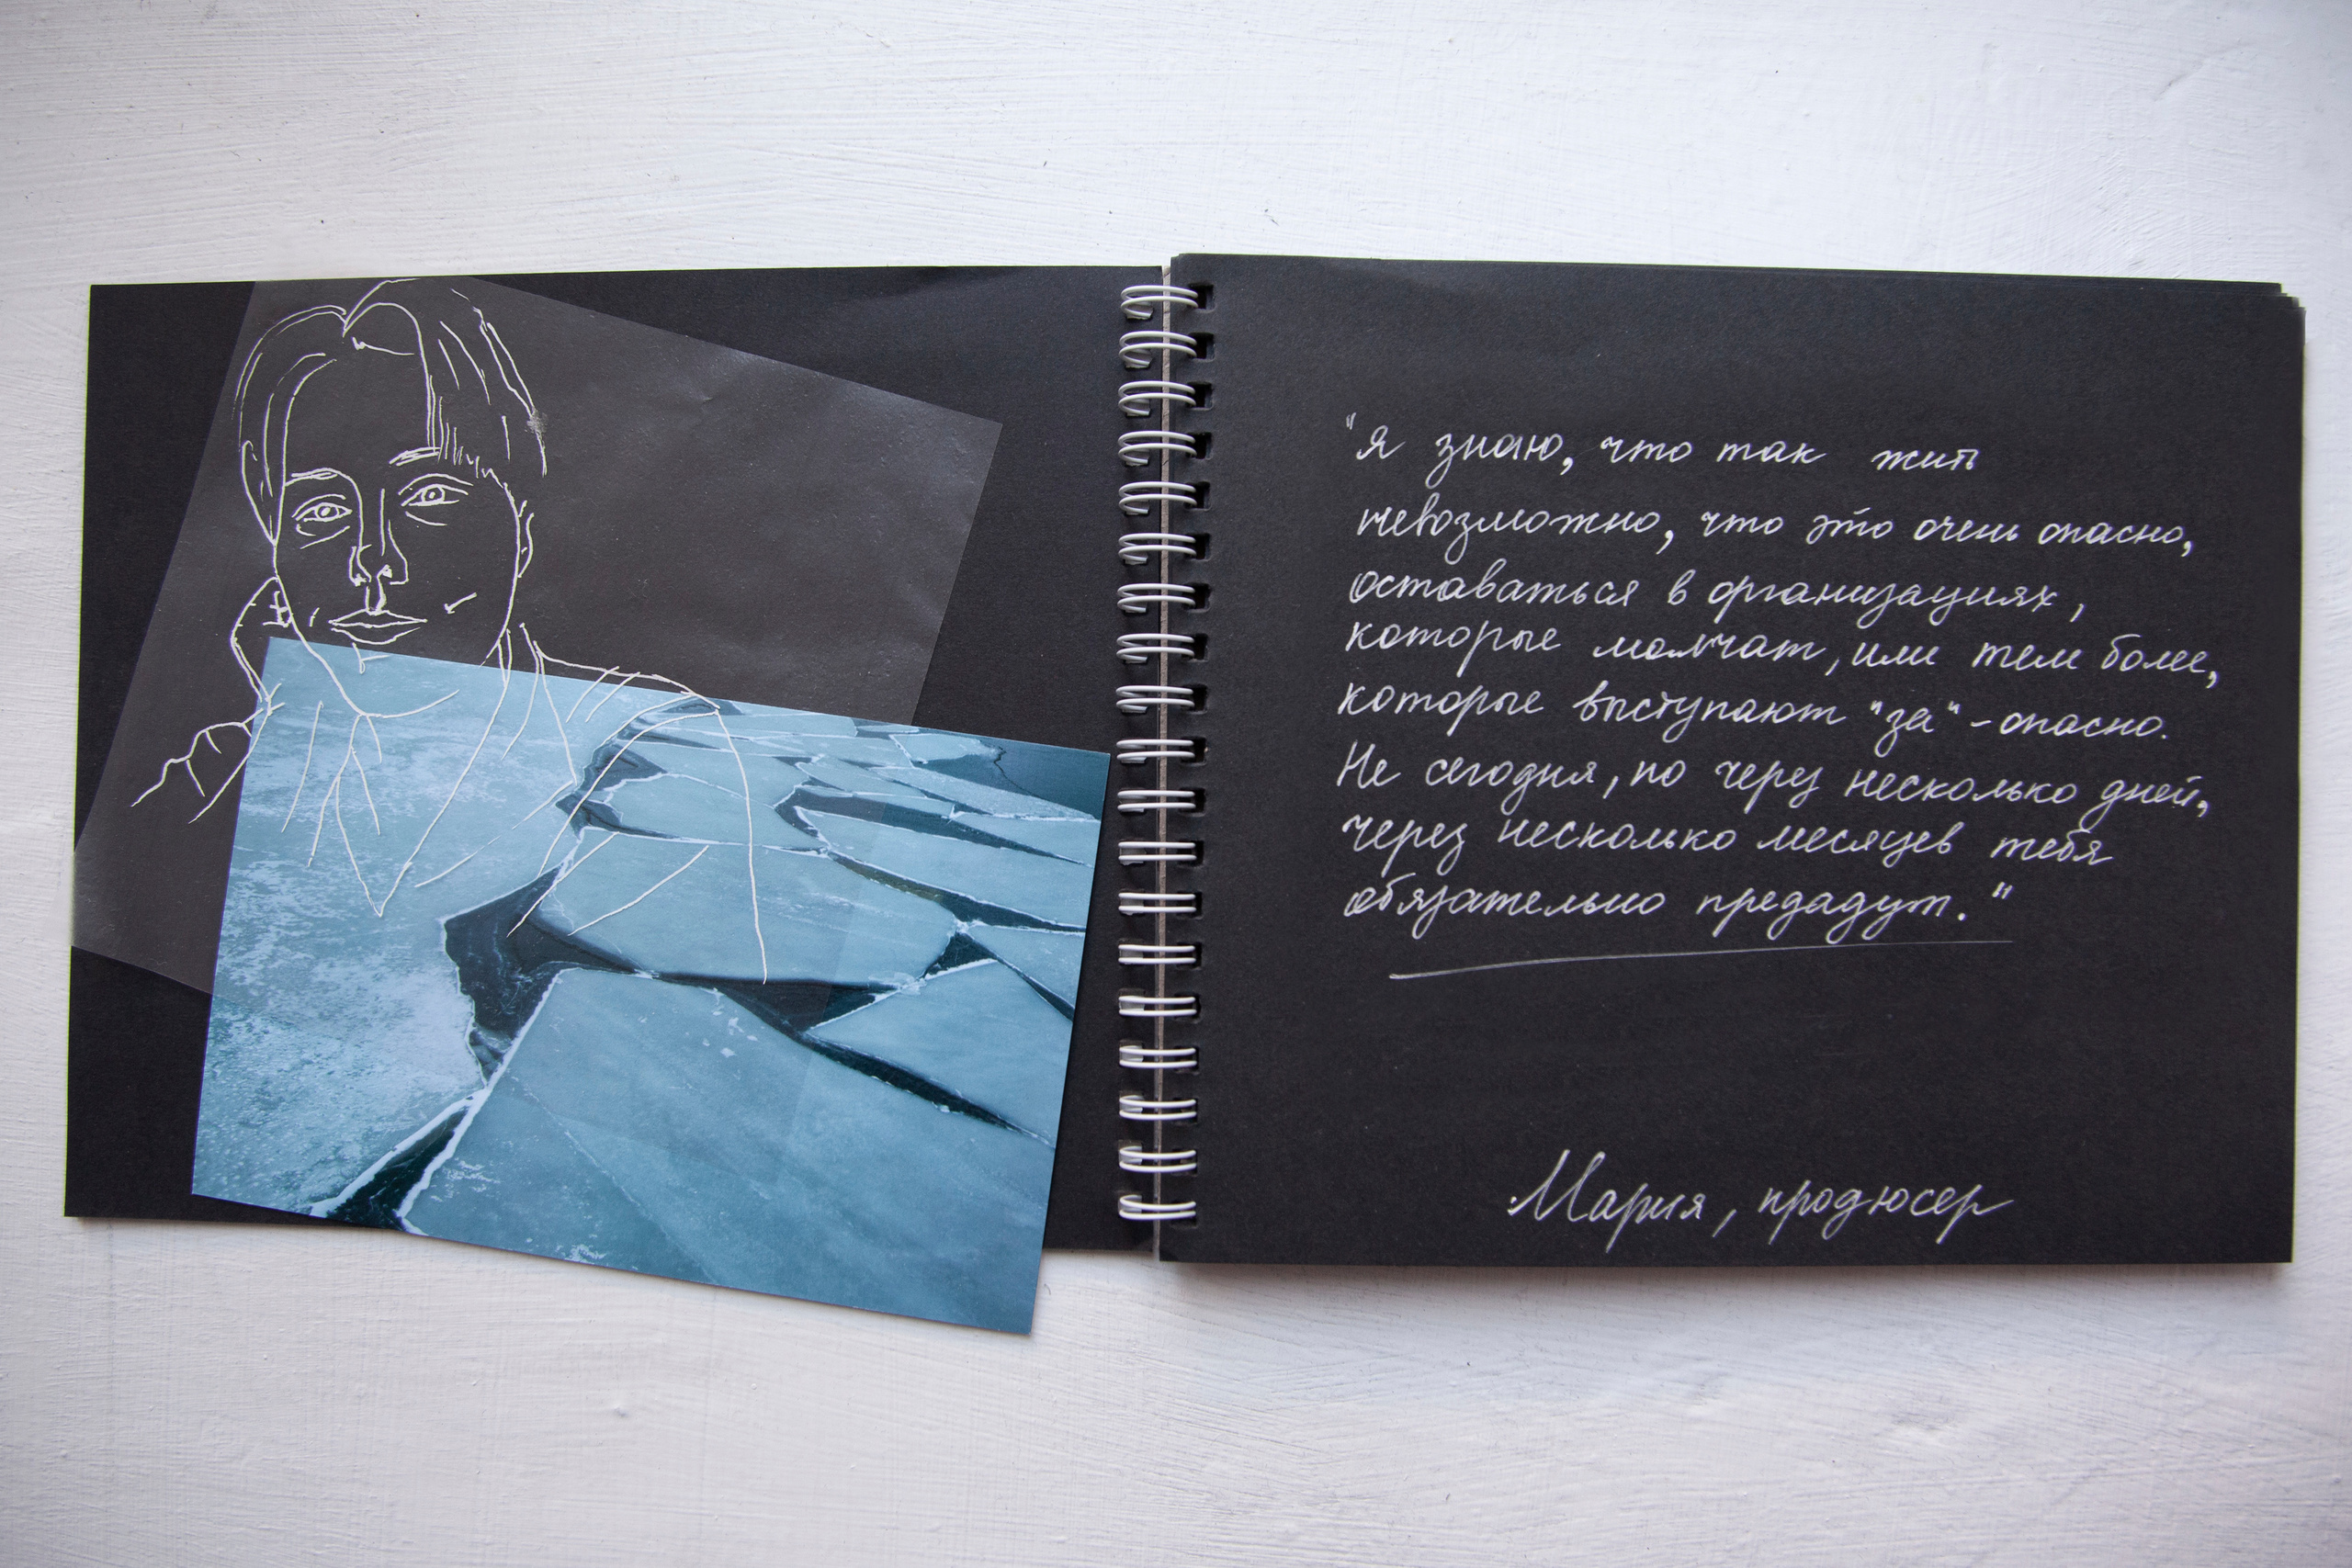 "Я знаю, что так жить
невозможно, что это очень опасно,
оставаться в организациях,
которые молчат, или тем более,
которые выступают "за" - опасно.
Не сегодня, но через несколько дней,
через несколько месяцев тебя
обязательно предадут."
Мария, продюсер